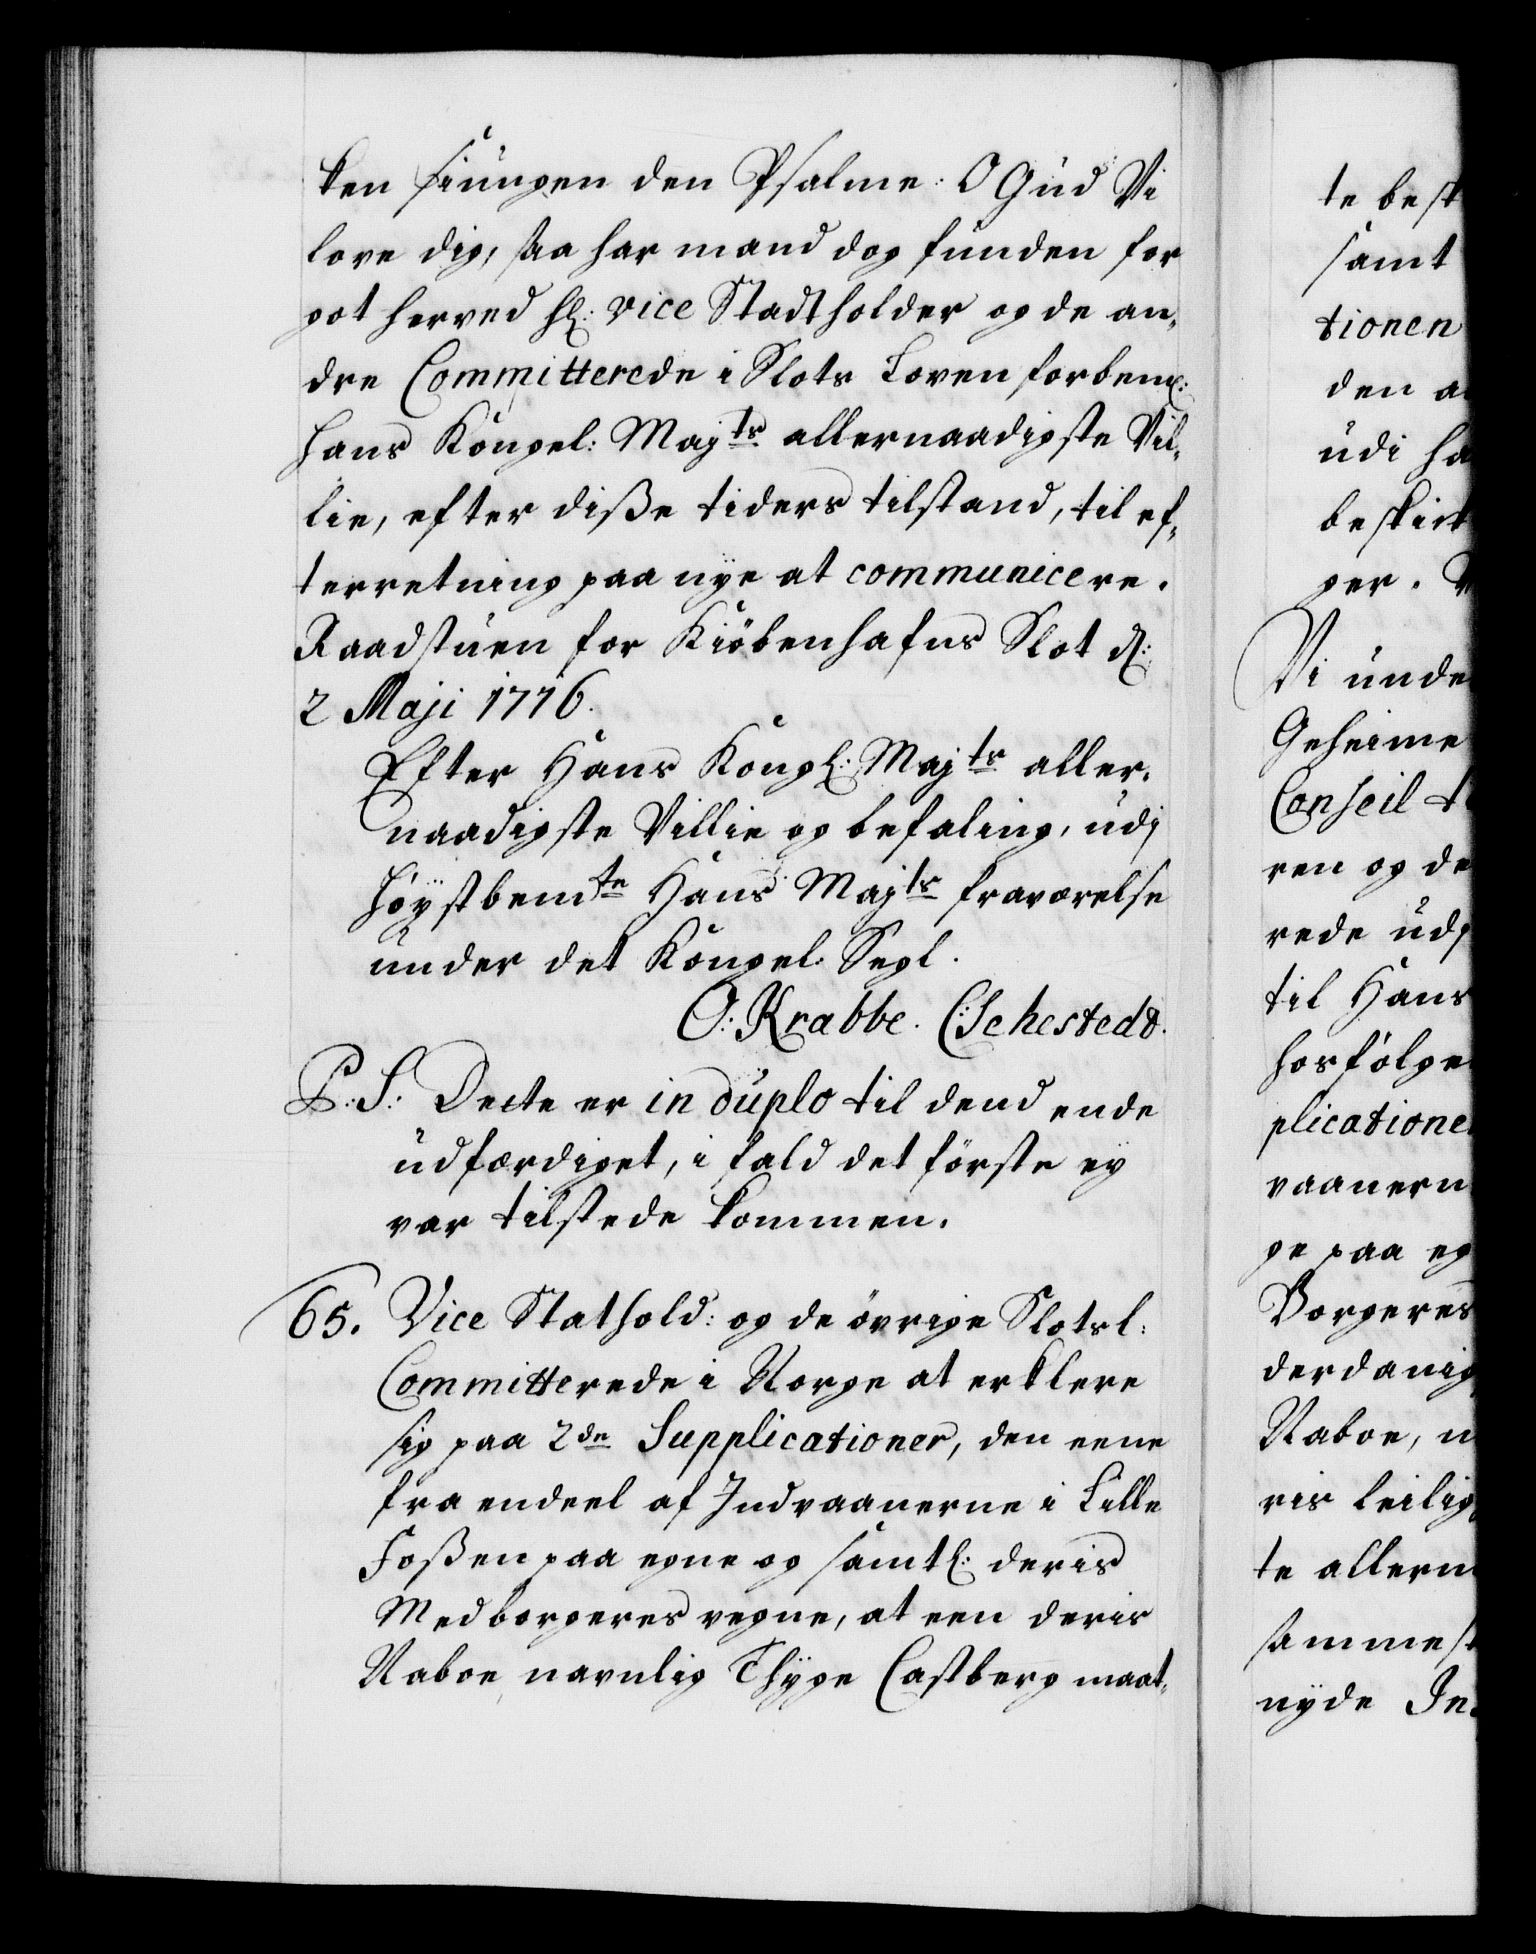 ken siungen den Psalme: O Gud Vi
love dig, saa har mand dog funden for
got herved hl: vice Stadtholder og de an,
dre Committerede i Slots Loven forbemel:
Hans Kongel: Majts allernaadigste Vil,
lie, efter diße tiders tilstand, til ef,
terretning paa nye at communicere.
Raadstuen for Kiöbenhafns Slot d:
2 Maji 1716.
Efter Hans Kongl: Majts aller,
naadigste Villie og befaling, udj
höystbemte Hans Majts fraværelse
under det Kongel. Segl.
O: Krabbe. C: Sehestedt.
P: S: Dette er in duplo til dend ende
udfærdiget, i fald det förste ey
var tilstede kommen.
65. Vice Stathold: og de övrige Slotsl:
Committerede i Norge at erklere
sig paa 2de Supplicationer, den eene
fra endeel af Indvaanerne i Lille
Foßen paa egne og samtl: deris
Medborgeres vegne, at een deris
Naboe navnlig Thyge Castberg maat,
te besk
samt
tionen
den a
udi ha
beskick
ger. V
Vi unde
Geheime
Conseil t
ren og de
rede udj
til Hans
hosfölge
plicatione
vaanern
ge paa eg
Borgeres
derdanig
Naboe, n
ris leilig
te allern
sammest
nyde In